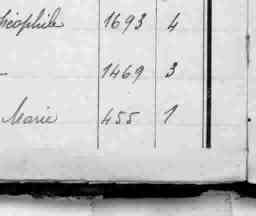 Théophile 1693 4
- 1469 3
Marie 455 1